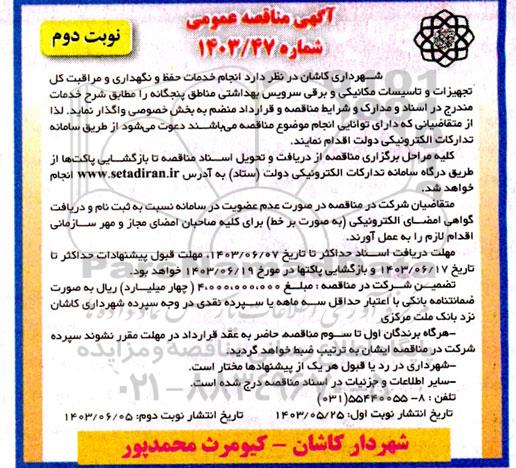 آگهی مناقصه عمومی
شماره ۱۴۰۳/۴۷
نوبت دوم
شهرداری کاشان در نظر دارد انجام خدمات حفظ و نگهداری و مراقبت کل
تجهیزات و تاسیسات مکانیکی و برقی سرویس بهداشتی مناطق پنجگانه را مطابق شرح خدمات
مندرج در اسناد و مدارک و شرایط مناقصه و قرارداد منضم به بخش خصوصی واگذار نماید. لذا
از متقاضیانی که دارای توانایی انجام موضوع مناقصه می‌باشند دعوت می‌شود از طریق سامانه
تدارکات الکترونیکی دولت اقدام نمایند.
کلیه مراحل برگزاری مناقصه از دریافت و تحویل اسناد مناقصه تا بازگشایی پاکت‌ها از
طریق درگاه سامانه تدارکات الکترونیکی دولت (ستاد) به آدرس www.setadiran.ir انجام
خواهد شد.
متقاضیان شرکت در مناقصه در صورت عدم عضویت در سامانه نسبت به ثبت نام و دریافت
گواهی امضای الکترونیکی (به صورت بر خط) برای کلیه صاحبان امضای مجاز و مهر سازمانی
اقدام لازم را به عمل آورند.
مهلت دریافت اسناد حداکثر تا تاریخ ۱۴۰۳/۰۶/۰۷، مهلت قبول پیشنهادات حداکثر تا
تاریخ ۱۴۰۳/۰۶/۱۷ و بازگشایی پاکتها در مورخ ۱۴۰۳/۰۶/۱۹ خواهد بود.
تضمین شرکت در مناقصه : مبلغ ۴،۰۰۰،۰۰۰،۰۰۰ ( چهار میلیارد) ریال به صورت
ضمانتنامه بانکی با اعتبار حداقل سه ماهه یا سپرده نقدی در وجه سپرده شهرداری کاشان
نزد بانک ملت مرکزی
-هرگاه برندگان اول تا سوم مناقصه، حاضر به عقد قرارداد در مهلت مقرر نشوند سپرده
شرکت در مناقصه ایشان به ترتیب ضبط خواهد گردید.
-شهرداری در رد یا قبول هر یک از پیشنهادها مختار است.
-سایر اطلاعات و جزئیات در اسناد مناقصه درج شده است.
تلفن : ۸- ۵۵۴۴۰۰۵۵(۰۳۱)
تاریخ انتشار نوبت اول: ۱۴۰۳/۰۵/۲۵ تاریخ انتشار نوبت دوم: ۱۴۰۳/۰۶/۰۵
شهردار کاشان - کیومرث محمدپور